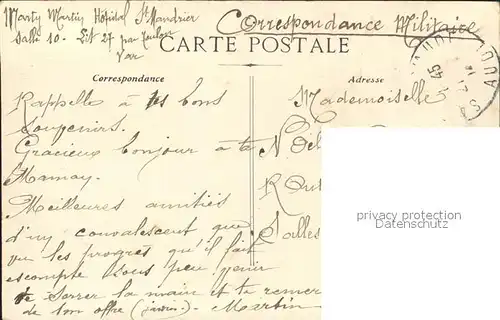 Marty Martin Hôpital St Mandrier
Salle 10. Lit 27 par Toulon
Var
Correspondance Militaire
CARTE POSTALE
Correspondance
Adresse
Rappelle à tes bons
souvenirs.
Gracieux bonjour à ta
Maman.
Meilleures amitiés
d'un convalescent que
vu les progrès qu'il fait
escompte sous peu venir
te serrer la main et te remer
de ton offre
Martin
Mademoiselle
N Del
R
Salles
privacy protection
Datenschutz
AUDE